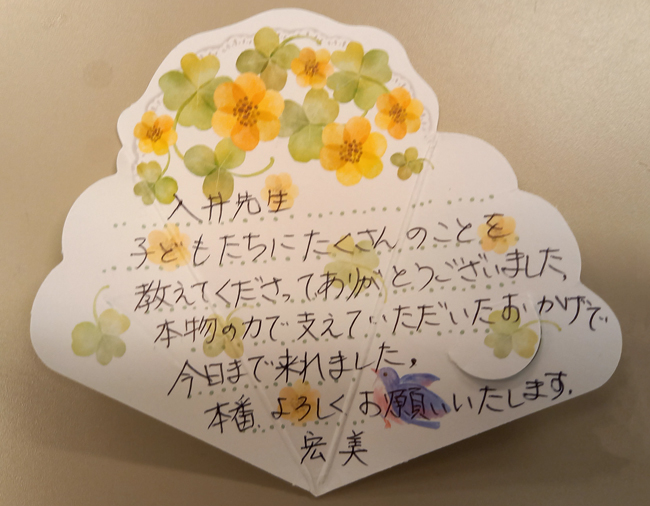 入井先生
子どもたちにたくさんのことを
教えてくださってありがとうございました。
本物の力で支えていただいたおかげで
今日まで来れました。
本番よろしくお願いいたします。
宏美